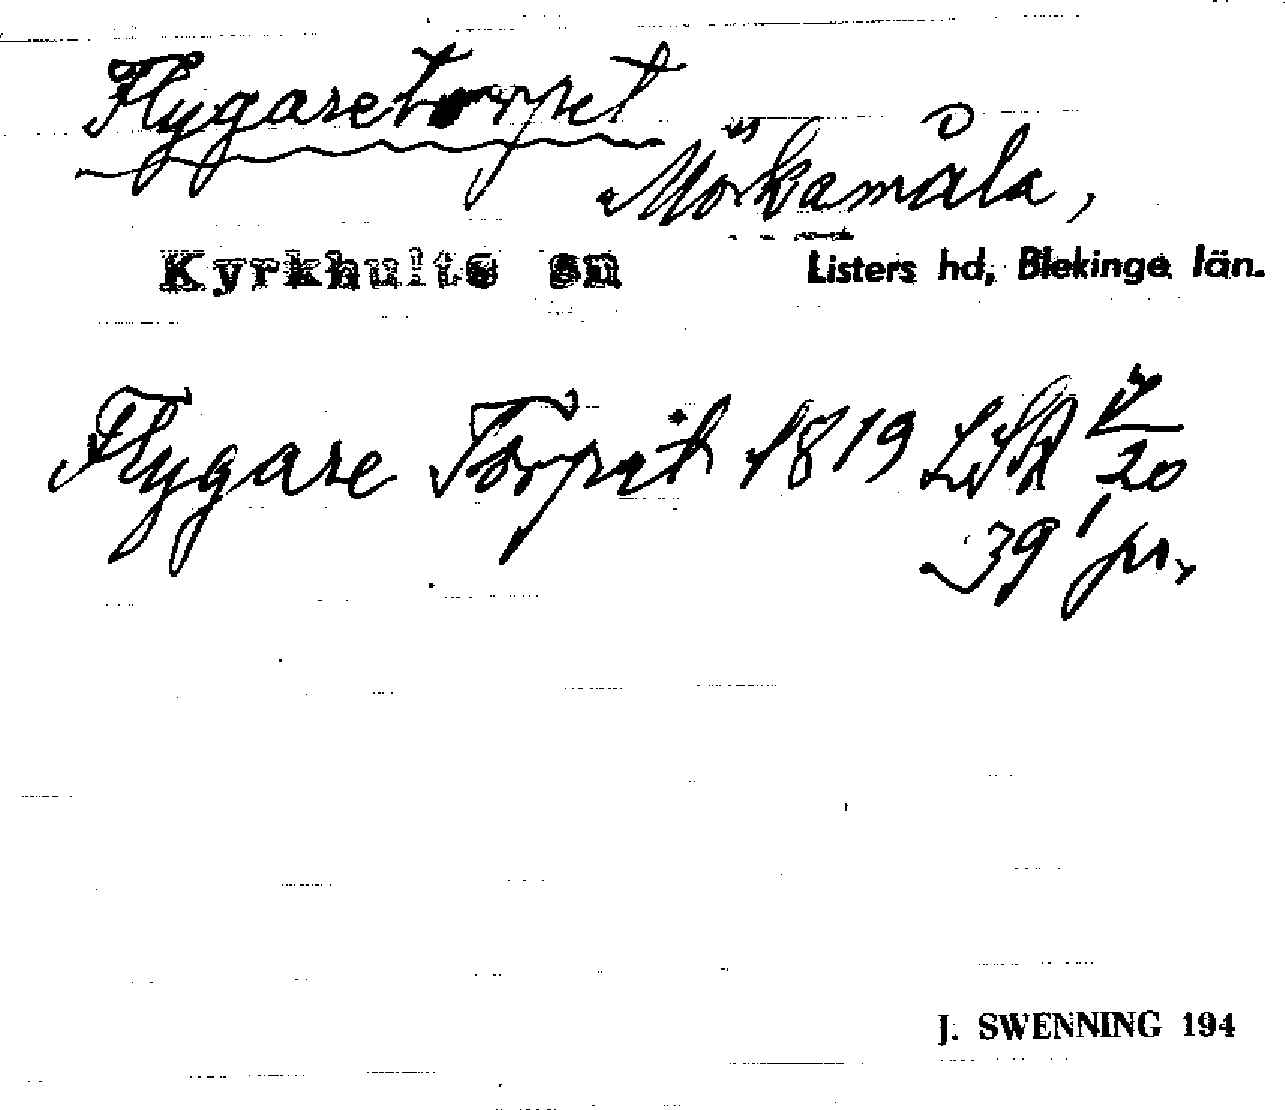 Flygaretorpet
Mörkamåla,
Kyrkhults sn Listers hd, Blekinge län.
Flygare Torpet 1819 LSA
20
39 pr.
J. SWENNING 194